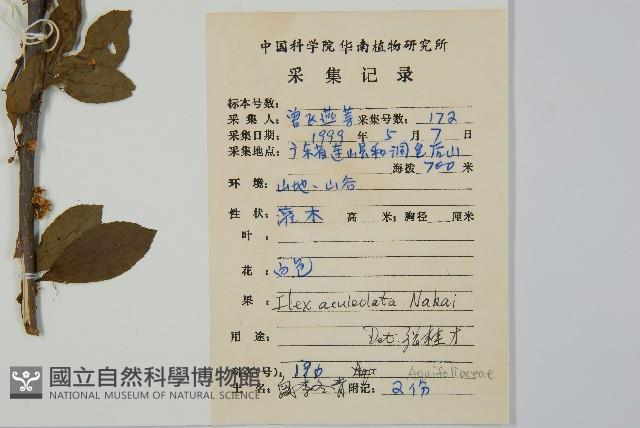 中国科学院华南植物研究所
采集记录
标本号数:
采集人: 曾飞燕等 采集号数: 172
采集日期: 1999 年 5 月 7 日
采集地点: 广东省连山县和洞 后山
海拔 760 米
环境: 山地、山谷
性状: 灌木 高 米; 胸径 厘米
叶:
花: 白色
果: Ilex aculeolata Nakai
用途: Det: 桂才
科名(号): 190 Aquifoliaceae
名: 李冬青 附记: 2份
國立自然科學博物館
NATIONAL MUSEUM OF NATURAL SCIENCE